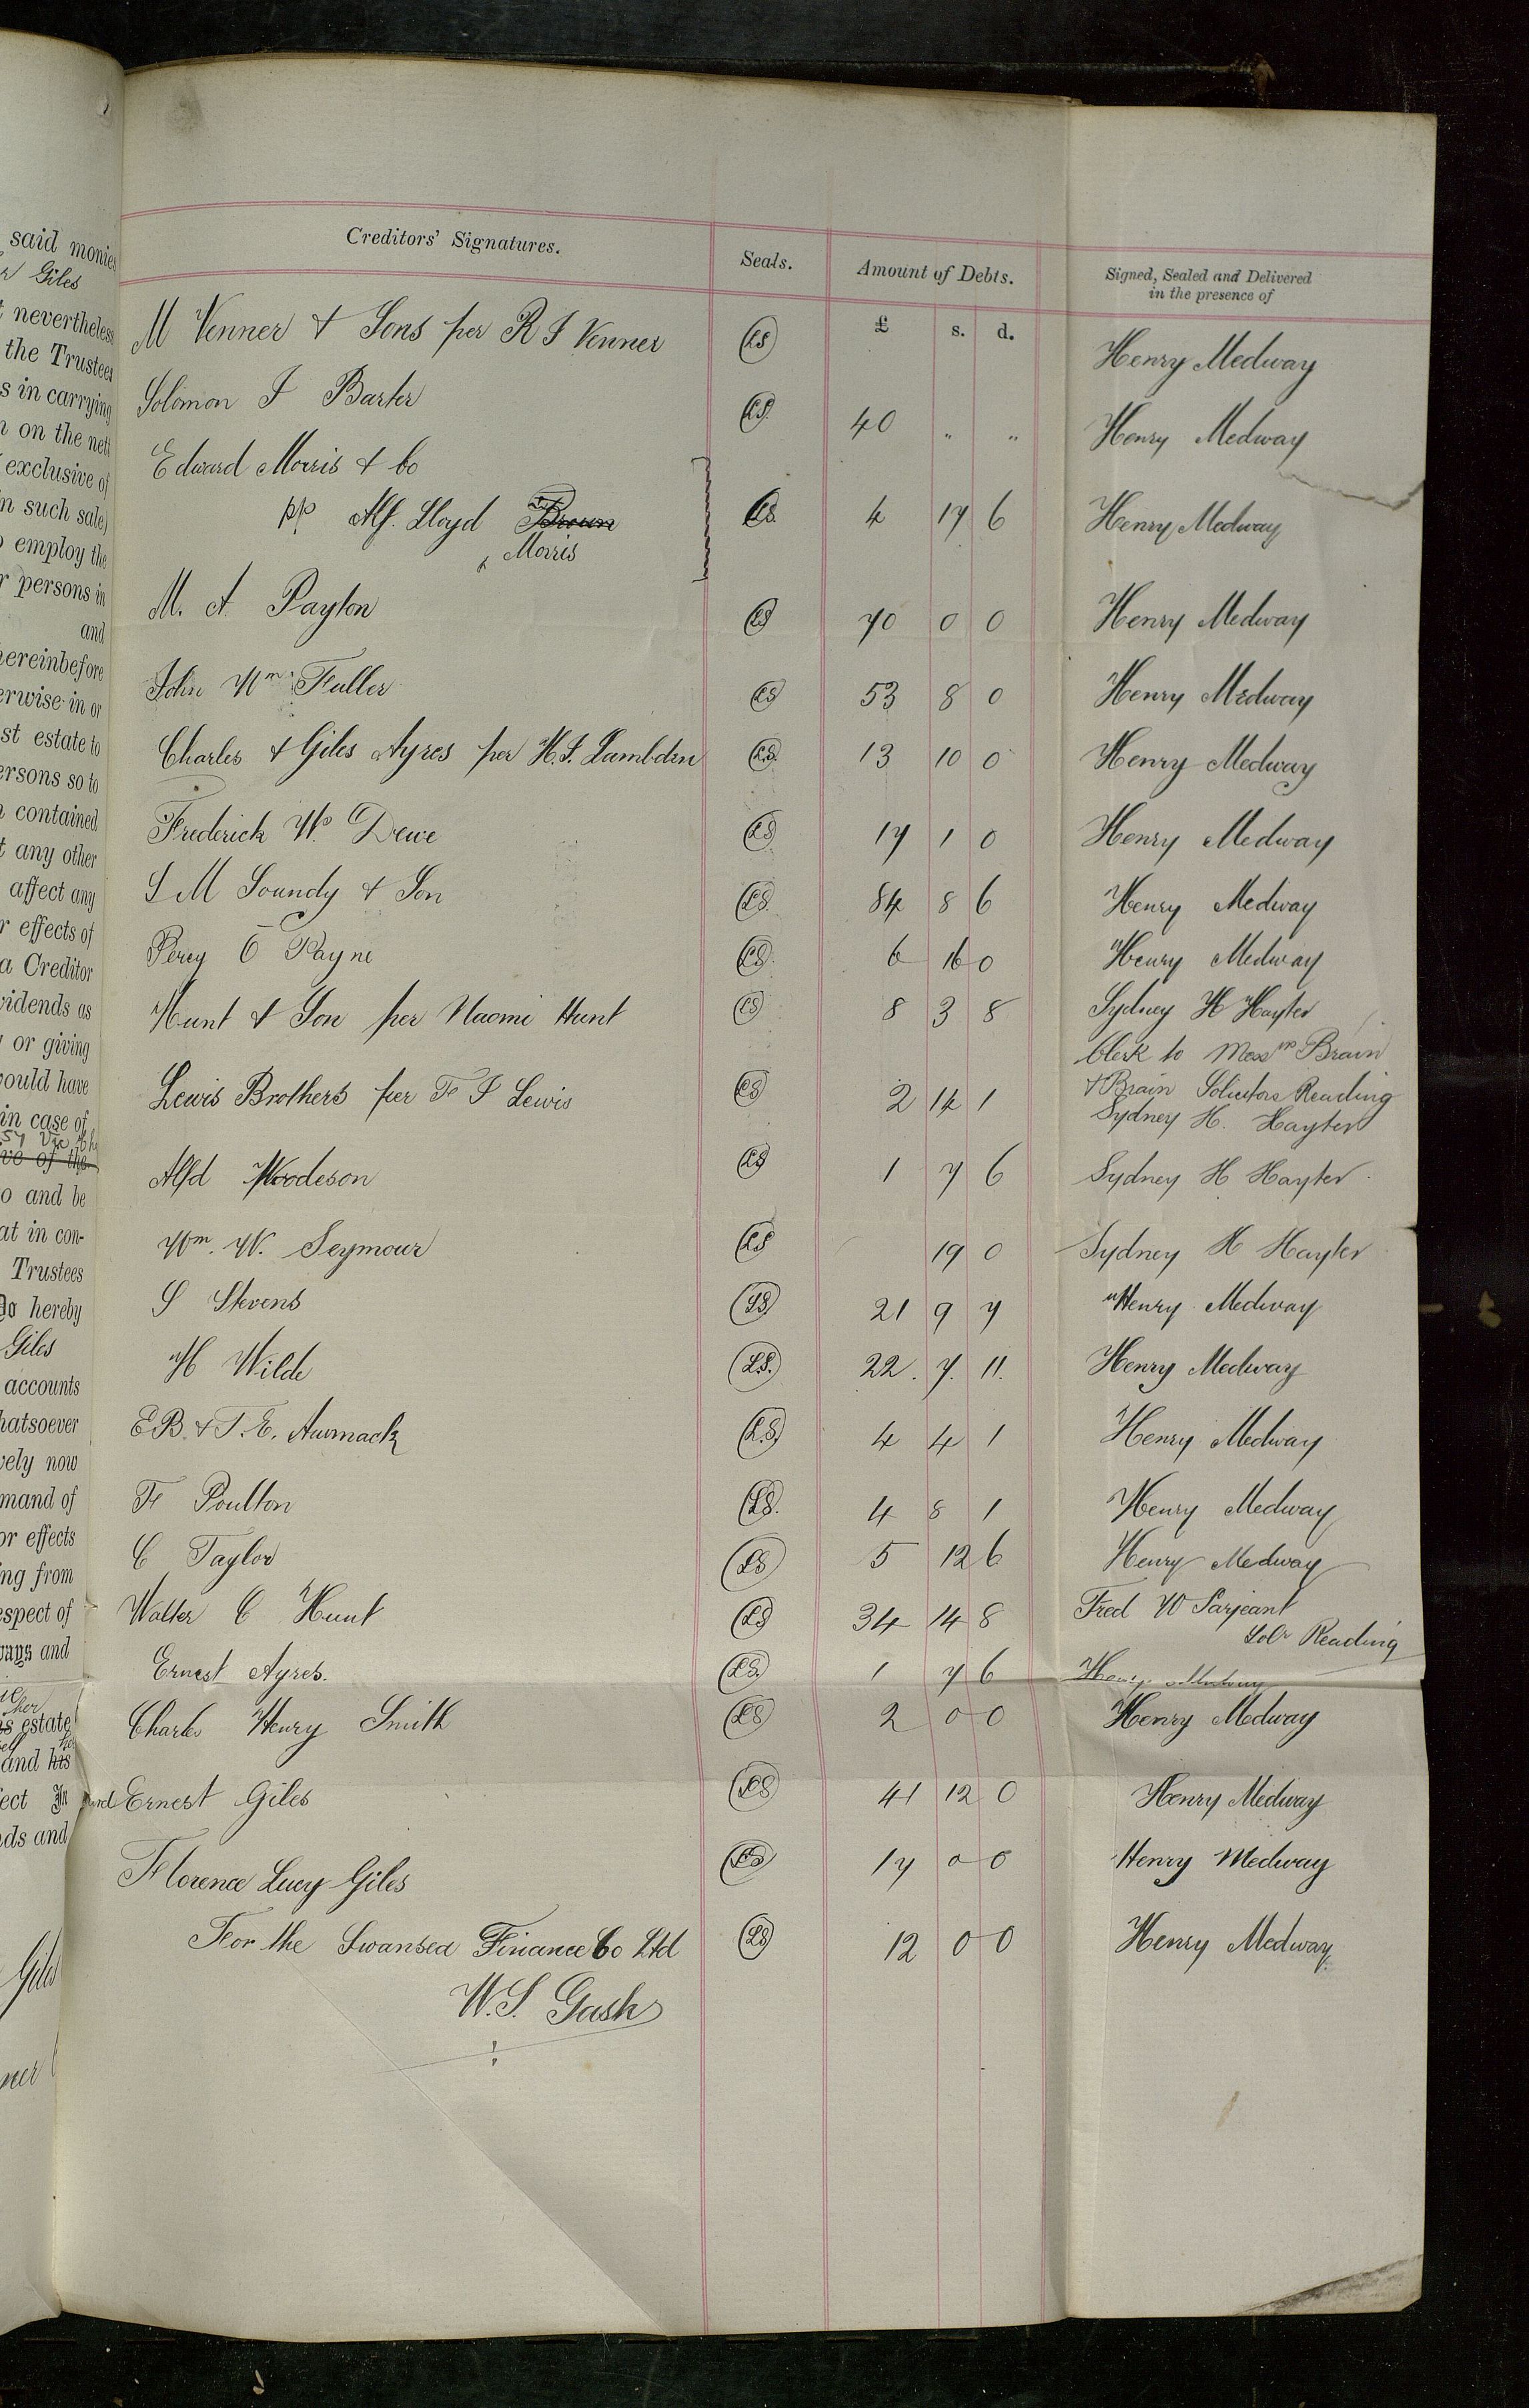 said monies
Giles
nevertheless
the Trustees
s in carrying
on the nett
exclusive of
n such sale)
employ the
r persons in
and
hereinbefore
erwise in or
st estate to
ersons so to
contained
any other
affect any
r effects of
a Creditor
vidends as
or giving
would have
in case of
ve of the
o and be
at in con-
Trustees
Do hereby
Giles
accounts
hatsoever
vely now
mand of
or effects
ng from
espect of
ways and
her
is estate
and his
ect In
ds and
Creditors' Signatures. Seals. Amount of Debts. Signed, Sealed and Delivered
in the presence of
£ s. d.
M Venner & Sons per R J Venner LS Henry Medway
Solomon J Barter LS 40 " " Henry Medway
Edward Morris & Co
pp Alf. Lloyd Brown LS 4 17 6 Henry Medway
Morris
M. A. Payton LS 70 0 0 Henry Medway
John Wm Fuller LS 53 8 0 Henry Medway
Charles & Giles Ayres per H.J. Lambden LS 13 10 0 Henry Medway
Frederick W. Dewe LS 17 1 0 Henry Medway
S M Soundy & Son LS 84 8 6 Henry Medway
Percy C Payne LS 6 16 0 Henry Medway
Hunt & Son per Naomi Hunt LS 8 3 8 Sydney H Hayter
Clerk to Messrs Brain
& Brain Solicitors Reading
Lewis Brothers per F J Lewis LS 2 14 1 Sydney H. Hayter
Alfd Woodeson LS 1 7 6 Sydney H Hayter
Wm. W. Seymour LS 19 0 Sydney H Hayter
S Stevens LS 21 9 7 Henry Medway
H Wilde LS. 22. 7. 11. Henry Medway
E B. & T. E. Aumack L.S. 4 4 1 Henry Medway
F Poulton LS. 4 8 1 Henry Medway
C Taylor LS 5 12 6 Henry Medway
Walter C Hunt LS 34 14 8 Fred W Sarjeant
Solr Reading
Ernest Ayres. LS. 1 7 6 Henry Medway
Charles Henry Smith LS 2 0 0 Henry Medway
Ernest Giles LS 41 12 0 Henry Medway
Florence Lucy Giles LS 17 0 0 Henry Medway
For the Swansea Finance Co Ltd LS 12 0 0 Henry Medway
W. S. Gash